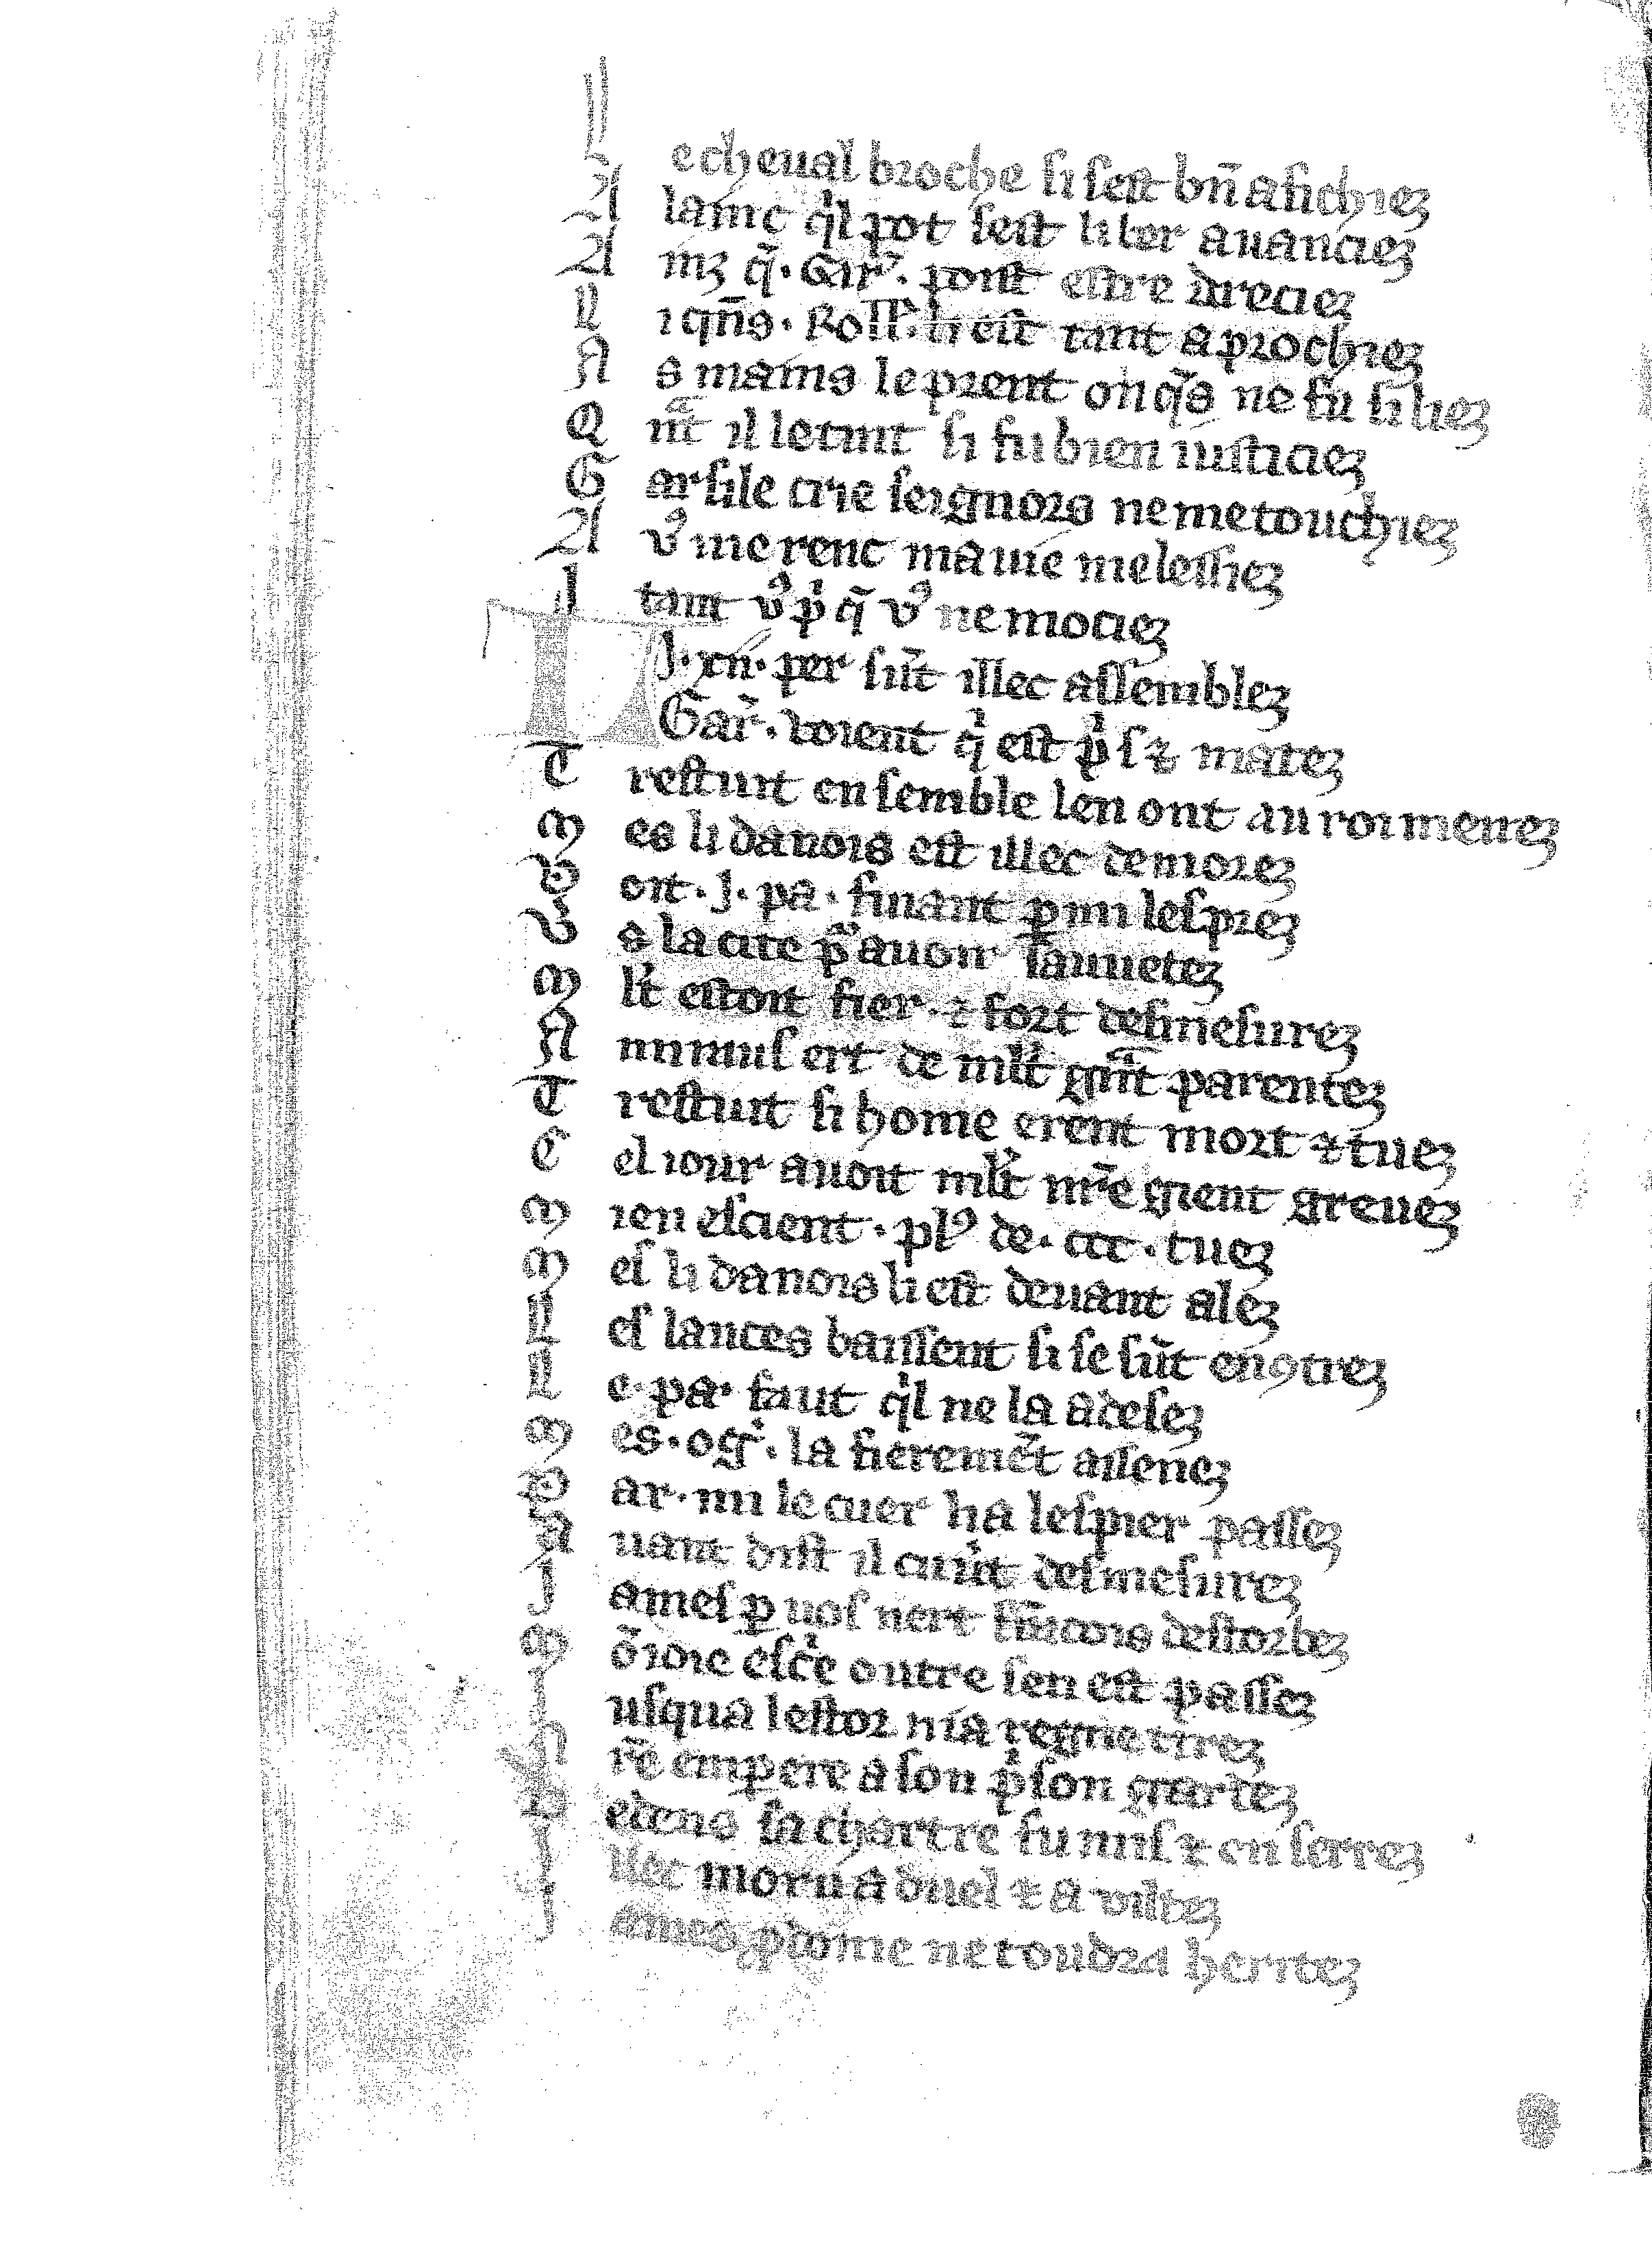 L e cheual broche si sest bn̄ afichiez
A lainc qͥl pot sest li ber auanciez
A inz q̄. Gar᷑. poist estre dreciez
L i qn̄s. Roll᷑. li est tant aprochiez
A s mains le prent onq̄s ne fu si liez
Q nͣt il le tint si fu bien iusticiez
G arsile crie seignors ne me touchiez
A vꝰ me renc ma uie me lessiez
I tant vꝰ pͥ q̄ vꝰ ne mociez
L I. xii. per sūt illec assemblez
Gar᷑. voient qͥ est pͥs ⁊ matez
T restuit ensemble len ont au roi menez
M es li danois est illec demorez
V oit. I. pa. fuiant ꝑmi les prez
V s la cite pͬ auoir sauuetez
M lt᷑ estoit fier ⁊ fort desmesurez
A nimus ert de mlt᷑ gnͣt parentez
T restuit si home erent mort ⁊ tuez
C el iour auoit mlt᷑ nr̄e gient greuez
M ien escient. plꝰ de. ccc. tuez
M es li danois li est deuant alez
L es lances baissent si se sūt enꝯtrez
L e. pa. faut qͥl ne la adesez
M es. og᷑. la fieremēt assenez
P ar. mi le cuer ha lespier passez
A uant dist il cuūt desmesurez
I ames ꝑ uos nert destorbez
M ōioie esc᷑e outre sen est passez
I usqua lestor nia regne tirez
N r̄e emꝑere a son pͥson gardez
D edens sa chartre fu mis ⁊ enserrez
I llec morͥra a duel ⁊ a viltez
I ames ne toudra heritez